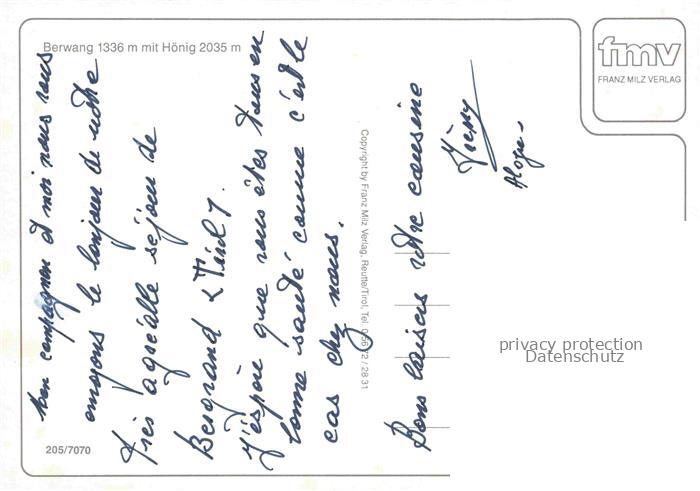 Berwang 1336 m mit Hönig 2035 m
fmv
FRANZ MILZ VERLAG
Mon compagnon et moi nous vous
envoyons le bonjour de notre
très agréable séjour de
Bergrand (Tirol).
J'espère que vous êtes tous en
bonne santé comme c'est le
cas chez nous.
Bons baisers votre cousine
Copyright by Franz Milz Verlag, Reutte/Tirol, Tel. 05672/2831
205/7070
privacy protection
Datenschutz